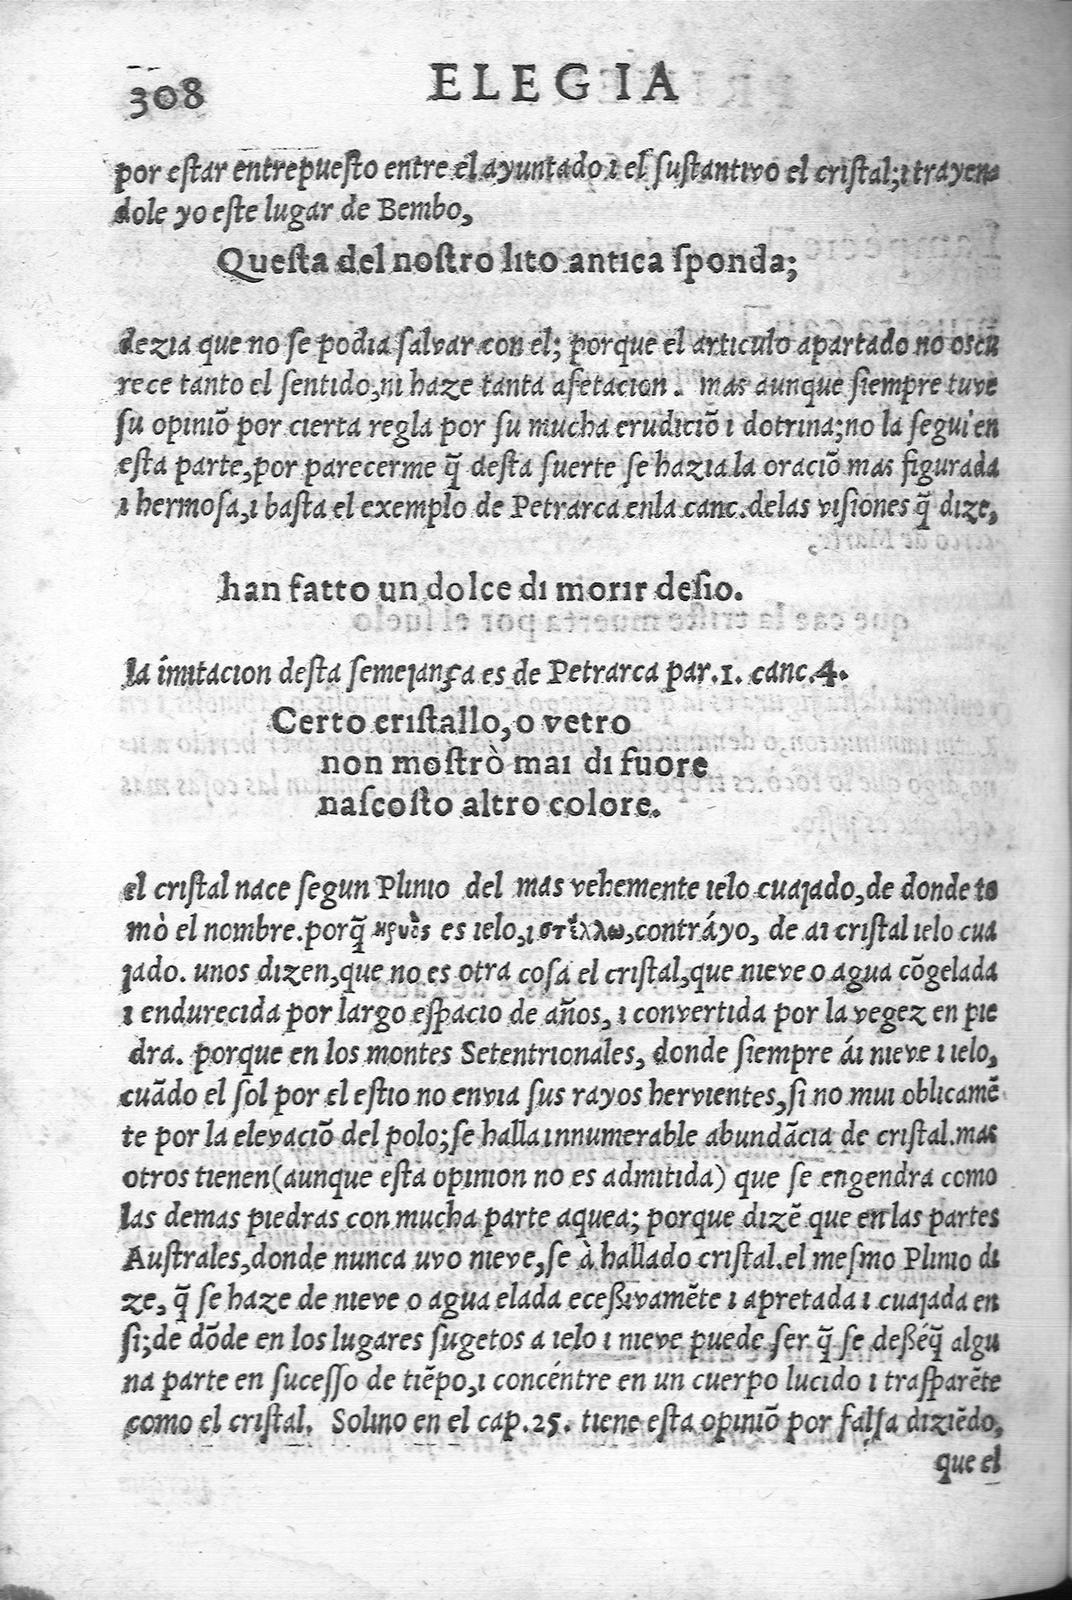 308 ELEGIA
por eſtar entrepueſto entre el ayuntado i el ſuſtantivo el criſtal;i trayen-
dole yo eſte lugar de Bembo,
Queſta del noſtro lito antica ſponda;
dezia que no ſe podia ſalvar con el; porque el articulo apartado no oscũ
rece tanto el ſentido,ni haze tanta afetacion. mas aunque ſiempre tuve
ſu opiniõ por cierta regla por ſu mucha erudiciõ i dotrina;no la ſegui en
eſta parte,por parecerme q̃ deſta ſuerte ſe hazia la oraciõ mas figurada
i hermoſa,i baſta el exemplo de Petrarca enla canc.delas viſiones q̃ dize,
han fatto un dolce di morir deſio.
la imitacion deſta ſemejança es de Petrarca par.1. canc.4.
Certo criſtallo,o vetro
non moſtrò mai di fuore
naſcoſto altro colore.
el criſtal nace ſegun Plinio del mas vehemente ielo cuajado,de donde to
mò el nombre.porq̃ κρυὸς es ielo,i στέλλω,contráyo, de ai criſtal ielo cua
jado. unos dizen,que no es otra coſa el criſtal,que nieve o agua cõgelada
i endurecida por largo eſpacio de años, i convertida por la vegez en pie
dra. porque en los montes Setentrionales, donde ſiempre ái nieve i ielo,
cuãdo el ſol por el eſtio no envia ſus rayos hervientes,ſi no mui oblicamẽ
te por la elevaciõ del polo;ſe halla innumerable abundãcia de criſtal.mas
otros tienen(aunque eſta opinion no es admitida) que ſe engendra como
las demas piedras con mucha parte aquea; porque dizẽ que en las partes
Auſtrales,donde nunca uvo nieve,ſe à hallado criſtal.el meſmo Plinio di
ze, q̃ ſe haze de nieve o agua elada eceßivamẽte i apretada i cuajada en
ſi;de dõde en los lugares ſugetos a ielo i nieve puede ſer q̃ ſe deßéq̃ algu
na parte en suceſſo de tiẽpo,i concéntre en un cuerpo lucido i traſparẽte
como el criſtal. Solino en el cap.25. tiene eſta opiniõ por falſa diziẽdo,
que el